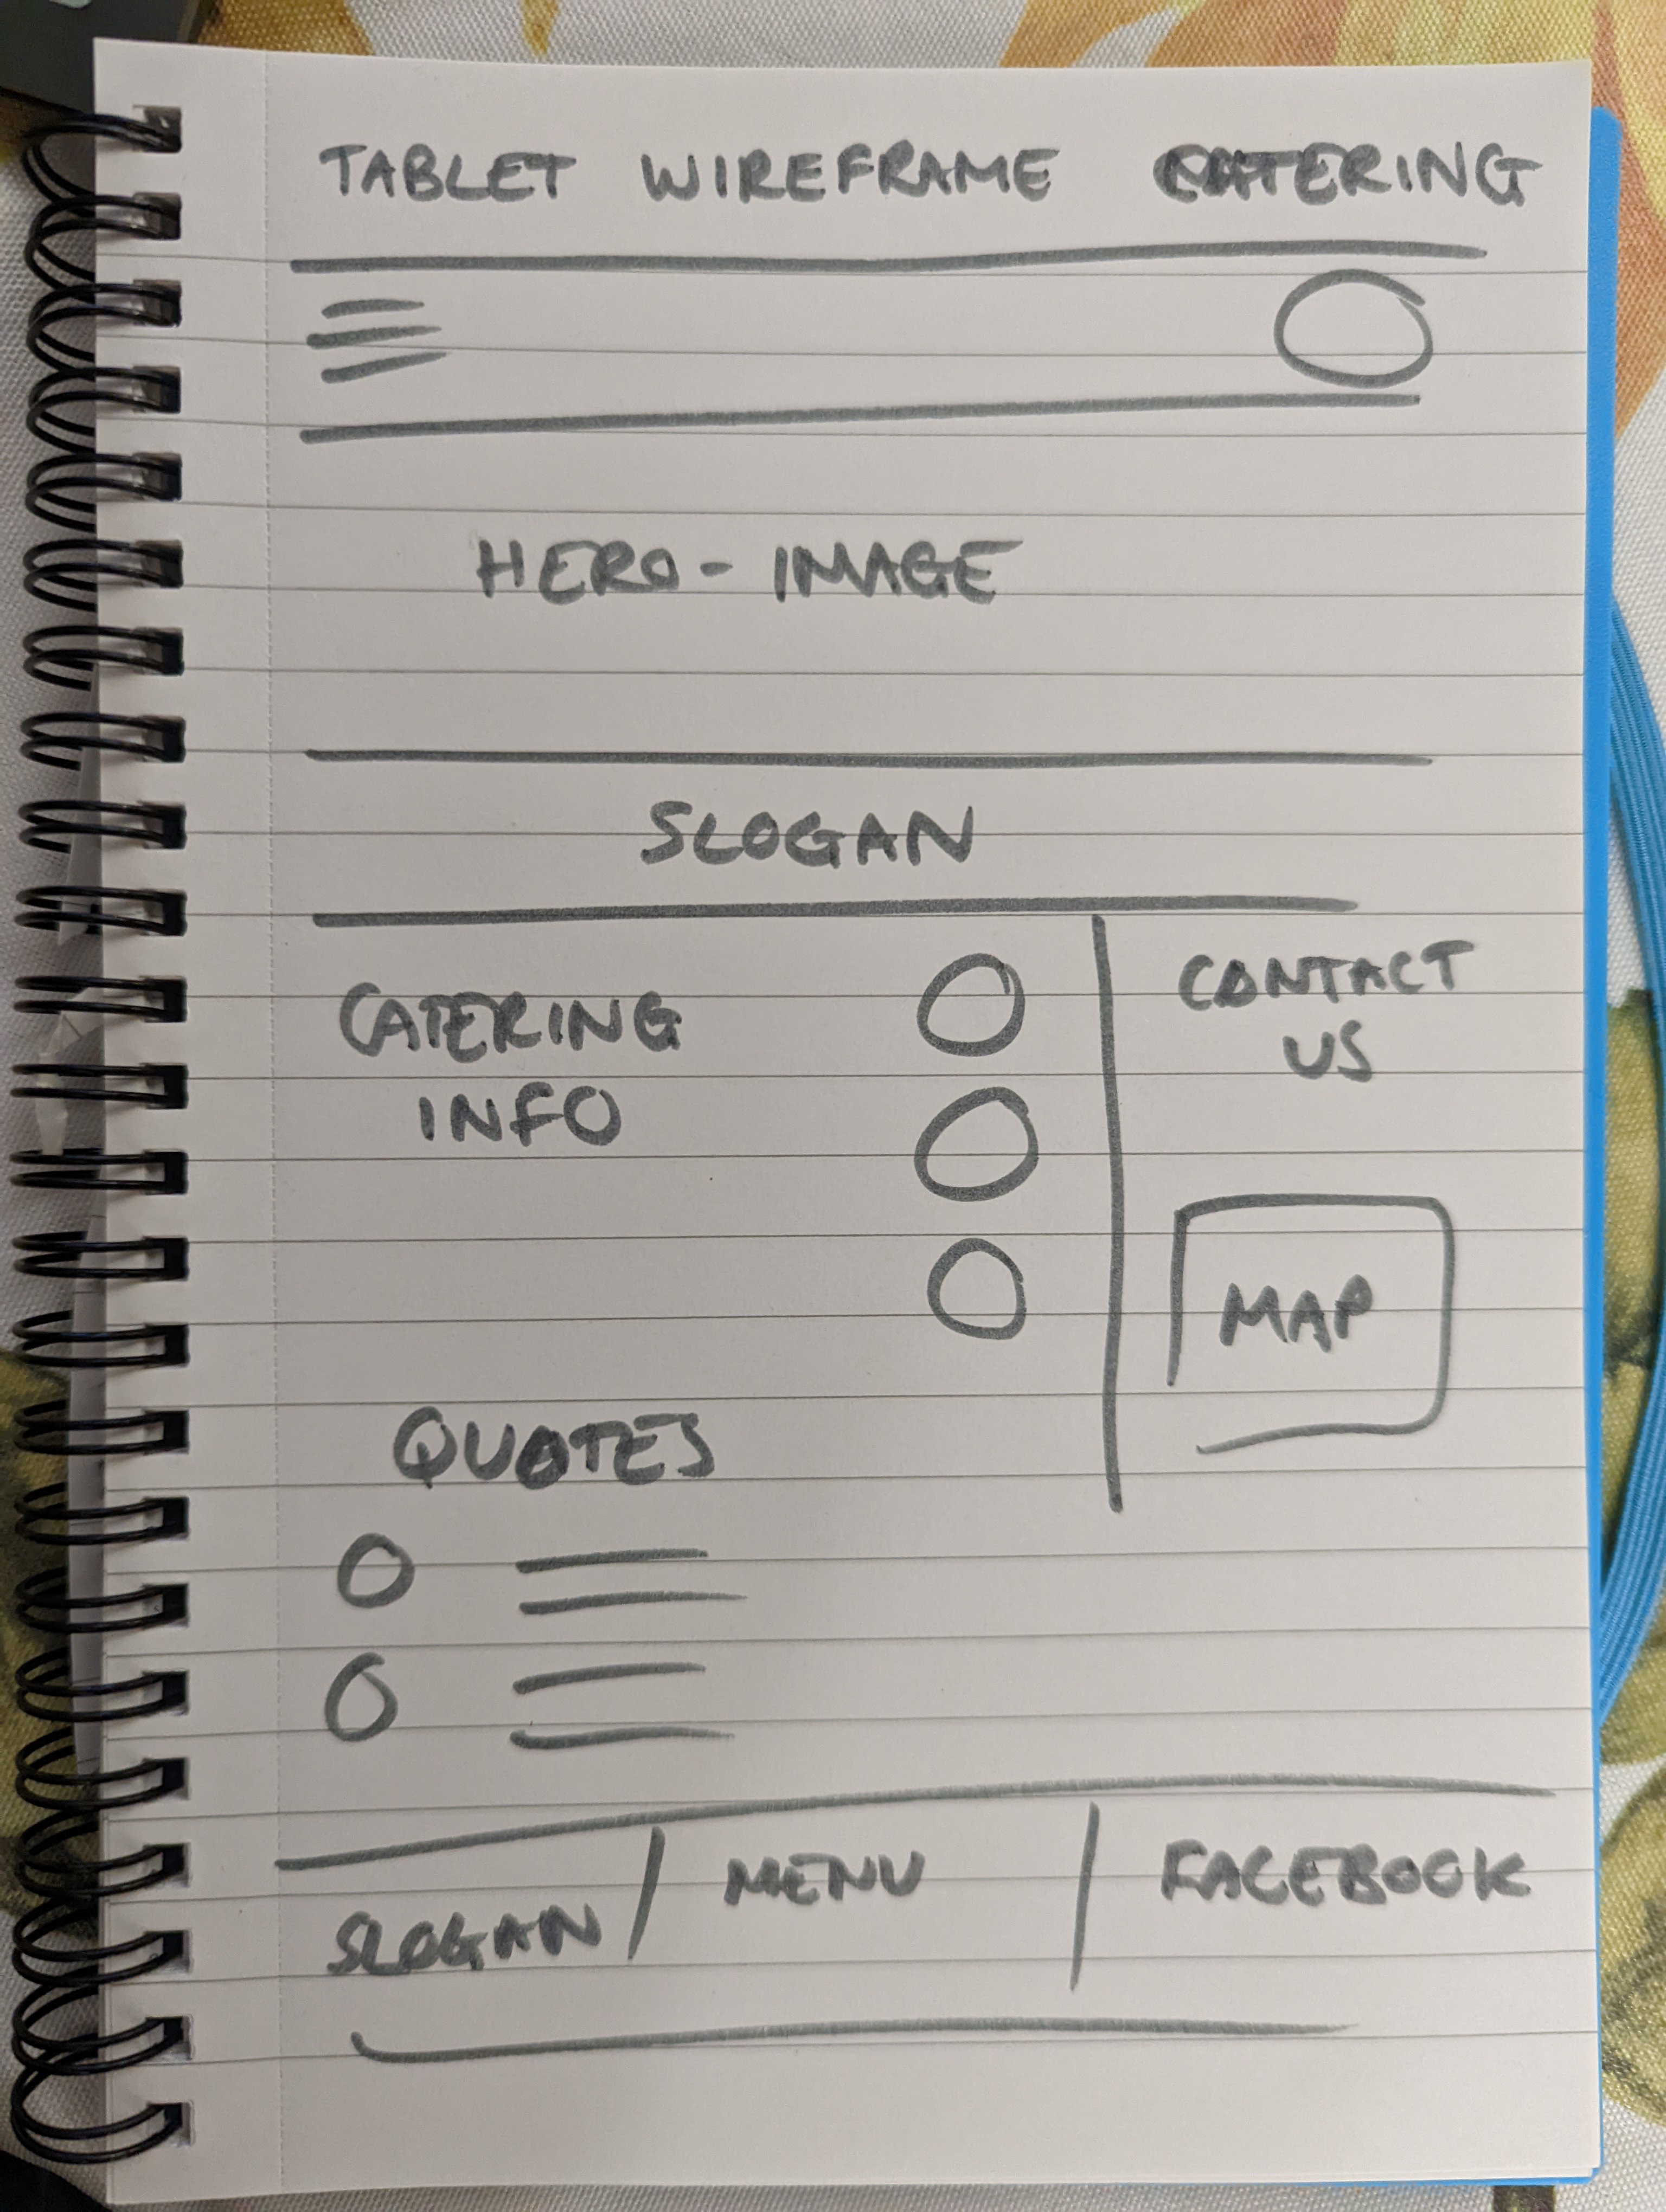 TABLET WIREFRAME CATERING
HERO - IMAGE
SLOGAN
CATERING
INFO
CONTACT
US
MAP
QUOTES
SLOGAN
MENU
FACEBOOK